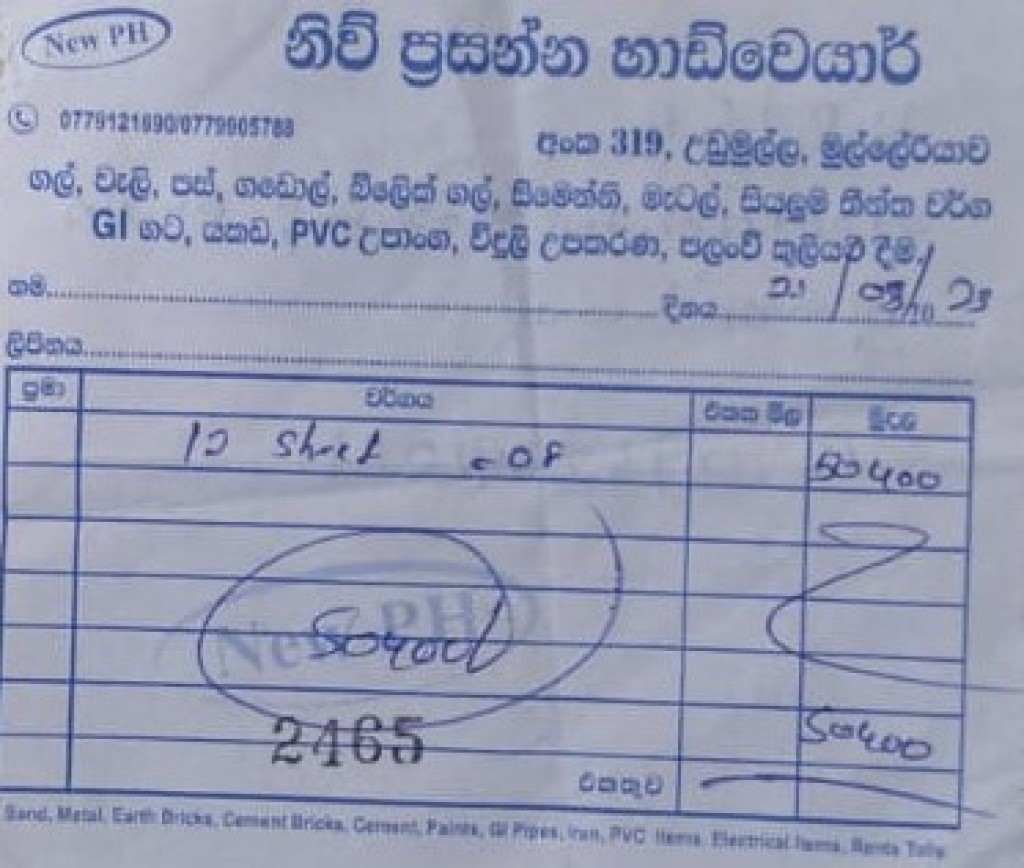 New PH
නිව් ප්‍රසන්න හාඩ්වෙයාර්
0779121690/0779905788
අංක 319, උඩුමුල්ල, මුල්ලේරියාව
ගල්, වැලි, පස්, ගඩොල්, බ්ලොක් ගල්, සිමෙන්ති, මැටල්, සියලුම තීන්ත වර්ග
GI ගට, යකඩ, PVC උපාංග, විදුලි උපකරණ, පලංචි කුලියට දීම.
නම
දිනය 21/05/2025
ලිපිනය
ප්‍රමා වර්ගය එකක මිල මුදල
12 08 50400
New PH
50400/
50400
2465
එකතුව
Sand, Metal, Earth Bricks, Cement Bricks, Cement, Paints, GI Pipes, Iran, PVC Items, Electrical Items, Rents Tolls